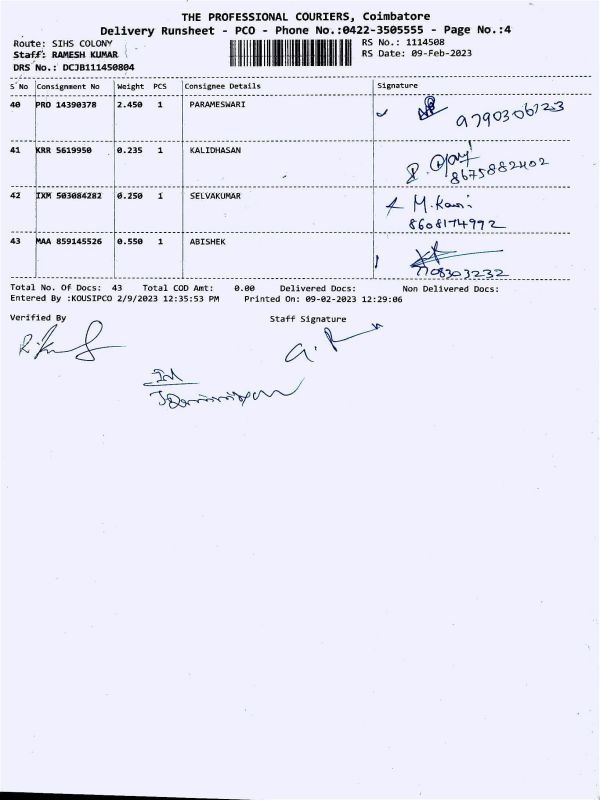 THE PROFESSIONAL COURIERS, Coimbatore
Delivery Runsheet - PCO - Phone No.:0422-3505555 - Page No.:4
Route: SIHS COLONY
RS No.: 1114508
Staff: RAMESH KUMAR
RS Date: 09-Feb-2023
DRS No.: DCJB111450804
S No Consignment No Weight PCS Consignee Details Signature
40 PRO 14390378 2.450 1 PARAMESWARI
9790306723
41 KRR 5619950 0.235 1 KALIDHASAN
8675882402
42 IXM 503084282 0.250 1 SELVAKUMAR M.Kani
8608174992
43 MAA 859145526 0.550 1 ABISHEK
7708303232
Total No. Of Docs: 43 Total COD Amt: 0.00 Delivered Docs: Non Delivered Docs:
Entered By :KOUSIPCO 2/9/2023 12:35:53 PM Printed On: 09-02-2023 12:29:06
Verified By Staff Signature